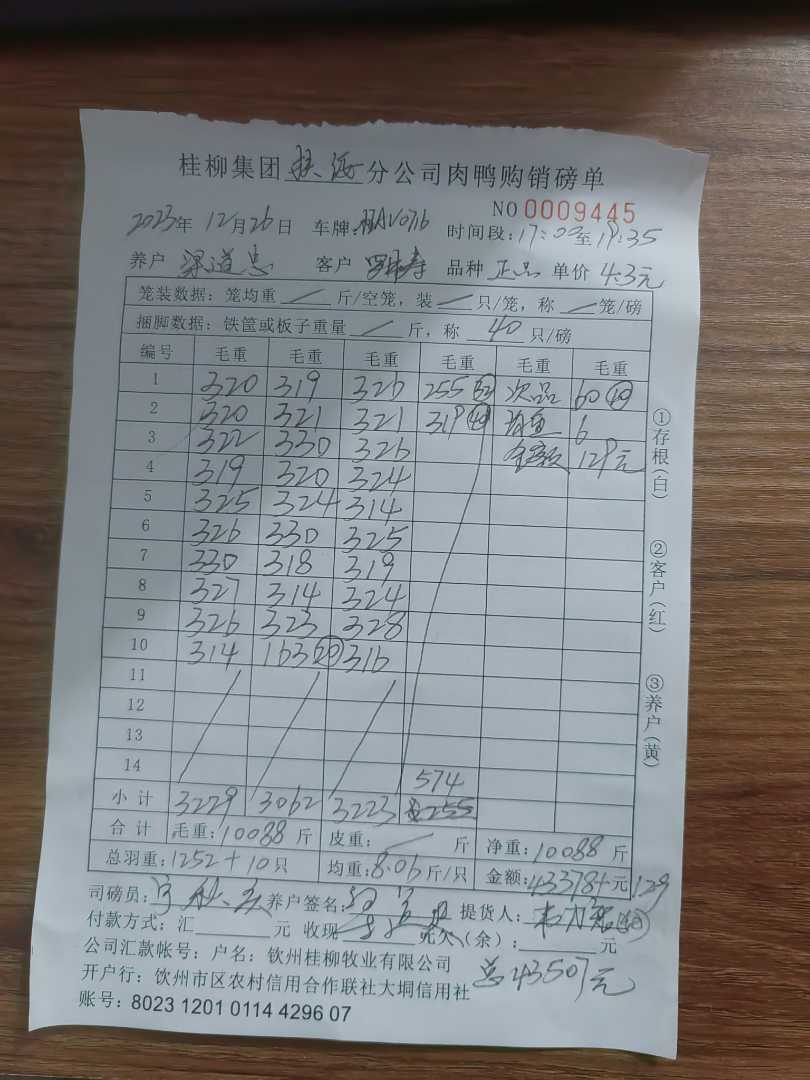 桂柳集团扶海分公司肉鸭购销磅单
NO 0009445
2023年 12月26日 车牌:桂AV0716 时间段:17:00至19:35
养户 渠道忠 客户 品种 正品 单价 4.3元
笼装数据:笼均重 / 斤/空笼,装 / 只/笼,称 / 笼/磅
捆脚数据:铁筐或板子重量 / 斤,称 40 只/磅
编号 毛重 毛重 毛重 毛重 毛重 毛重
1 320 319 326 255 32 次品 60 10
2 320 321 321 319 40 6
3 322 330 326 金额 129元
4 319 320 324
5 325 324 314
6 326 330 325
7 330 318 319
8 327 314 324
9 326 323 328
10 314 163 20 316
11
12
13
14 574
小计 3229 3062 3223 255
合计 毛重:10088斤 皮重: / 斤 净重:10088斤
总羽重:1252+10只 均重:8.06斤/只 金额:43378+元129
司磅员: 养户签名: 提货人:
付款方式:汇 元 收现 元欠(余): 元
公司汇款帐号:户名:钦州桂柳牧业有限公司
开户行:钦州市区农村信用合作联社大垌信用社 总43507元
账号:8023 1201 0114 4296 07
①存根(白)
②客户(红)
③养户(黄)